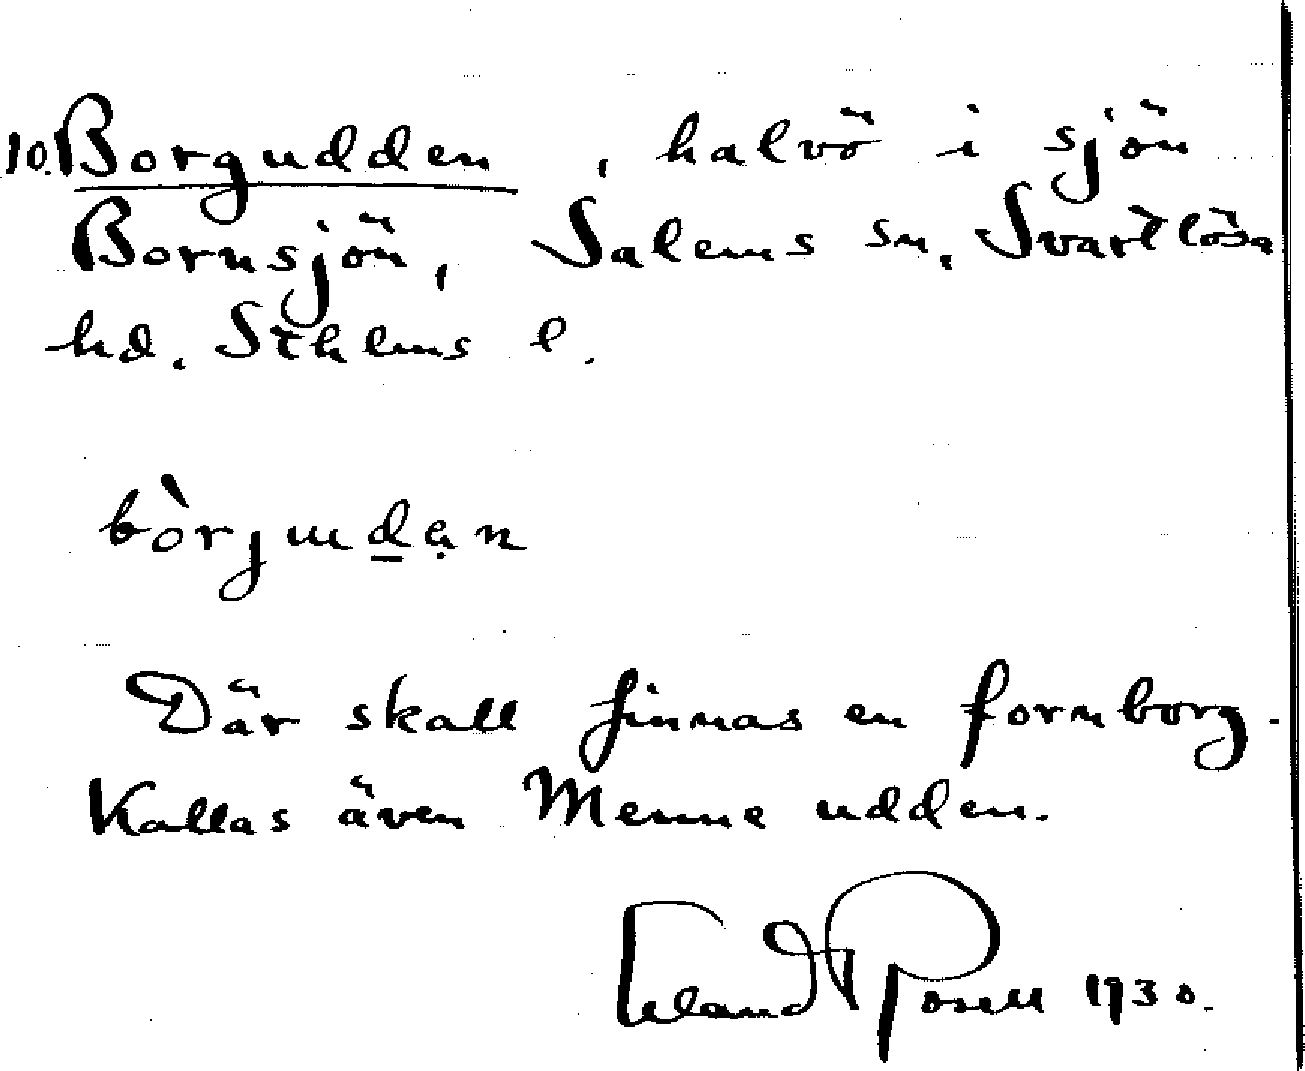 10. Borgudden, halvö i sjön
Bornsjön, Salems sn, Svartlösa
hd. Sthlms l.
bòrjuden
Där skall finnas en fornborg.
Kallas även Menne udden.
Erland Rosell 1930.